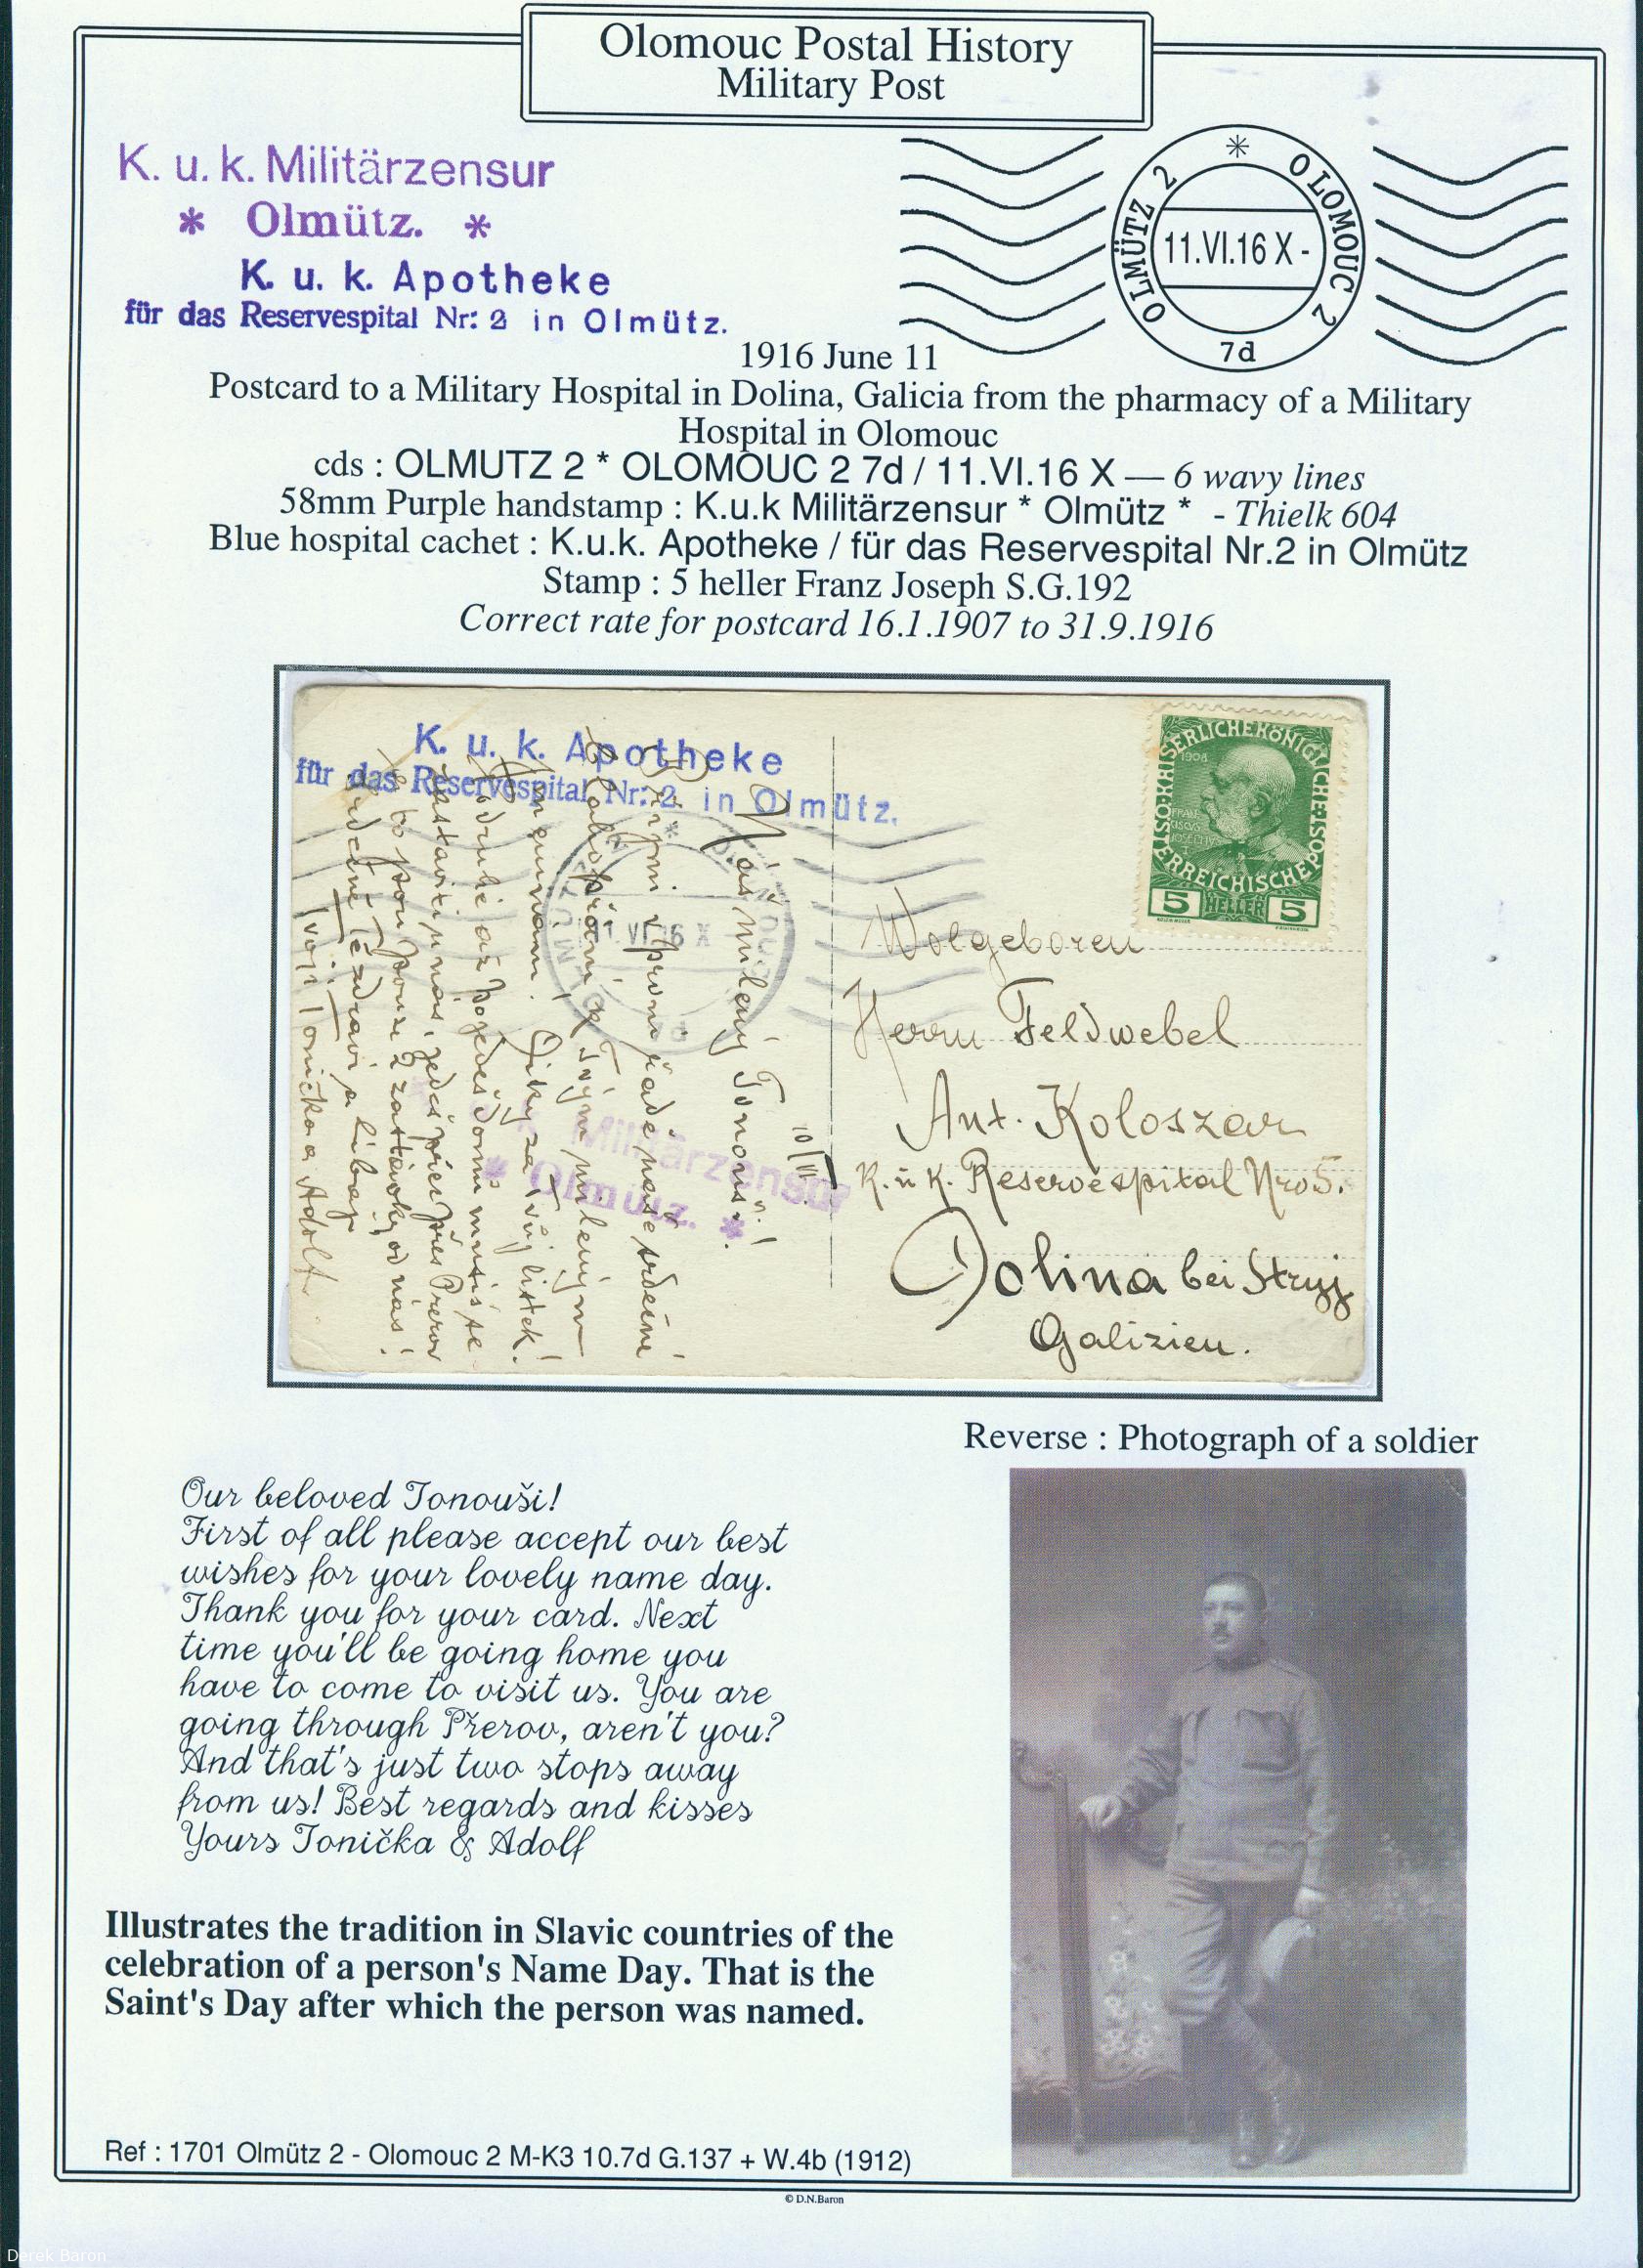 Olomouc Postal History
Military Post
K. u. k. Militärzensur
* Olmütz. *
K. u. k. Apotheke
für das Reservespital Nr: 2 in Olmütz.
OLMÜTZ 2 * OLOMOUC 2
11.VI.16 X -
7d
1916 June 11
Postcard to a Military Hospital in Dolina, Galicia from the pharmacy of a Military
Hospital in Olomouc
cds : OLMUTZ 2 * OLOMOUC 2 7d / 11.VI.16 X — 6 wavy lines
58mm Purple handstamp : K.u.k Militärzensur * Olmütz * - Thielk 604
Blue hospital cachet : K.u.k. Apotheke / für das Reservespital Nr.2 in Olmütz
Stamp : 5 heller Franz Joseph S.G.192
Correct rate for postcard 16.1.1907 to 31.9.1916
K. u. k. Apotheke
für das Reservespital Nr: 2 in Olmütz.
1908
5 HELLER 5
Militärzensur
* Olmütz. *
10/VI
Náš milený Tonouši!
Přijmi v první řadě naše srdečné
Tvým milených
Díky za Tvůj lístek!
až pojedeš domů musíš se
zastaviti u nás, jedeš přes Přerov
to jsou pouze 2 zastávky od nás!
Srdečně Tě zdraví a líbají
Tvoji Tonička a Adolf
Wolgeboren
Herrn Feldwebel
Ant. Koloszar
K. u. K. Reservespital Nro 5.
Dolina bei Stryj
Galizien.
Reverse : Photograph of a soldier
Our beloved Tonouši!
First of all please accept our best
wishes for your lovely name day.
Thank you for your card. Next
time you'll be going home you
have to come to visit us. You are
going through Přerov, aren't you?
And that's just two stops away
from us! Best regards and kisses
Yours Tonička & Adolf
Illustrates the tradition in Slavic countries of the
celebration of a person's Name Day. That is the
Saint's Day after which the person was named.
Ref : 1701 Olmütz 2 - Olomouc 2 M-K3 10.7d G.137 + W.4b (1912)
© D.N.Baron
Derek Baron